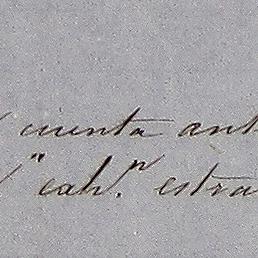 cuenta ant
" cab.n estra